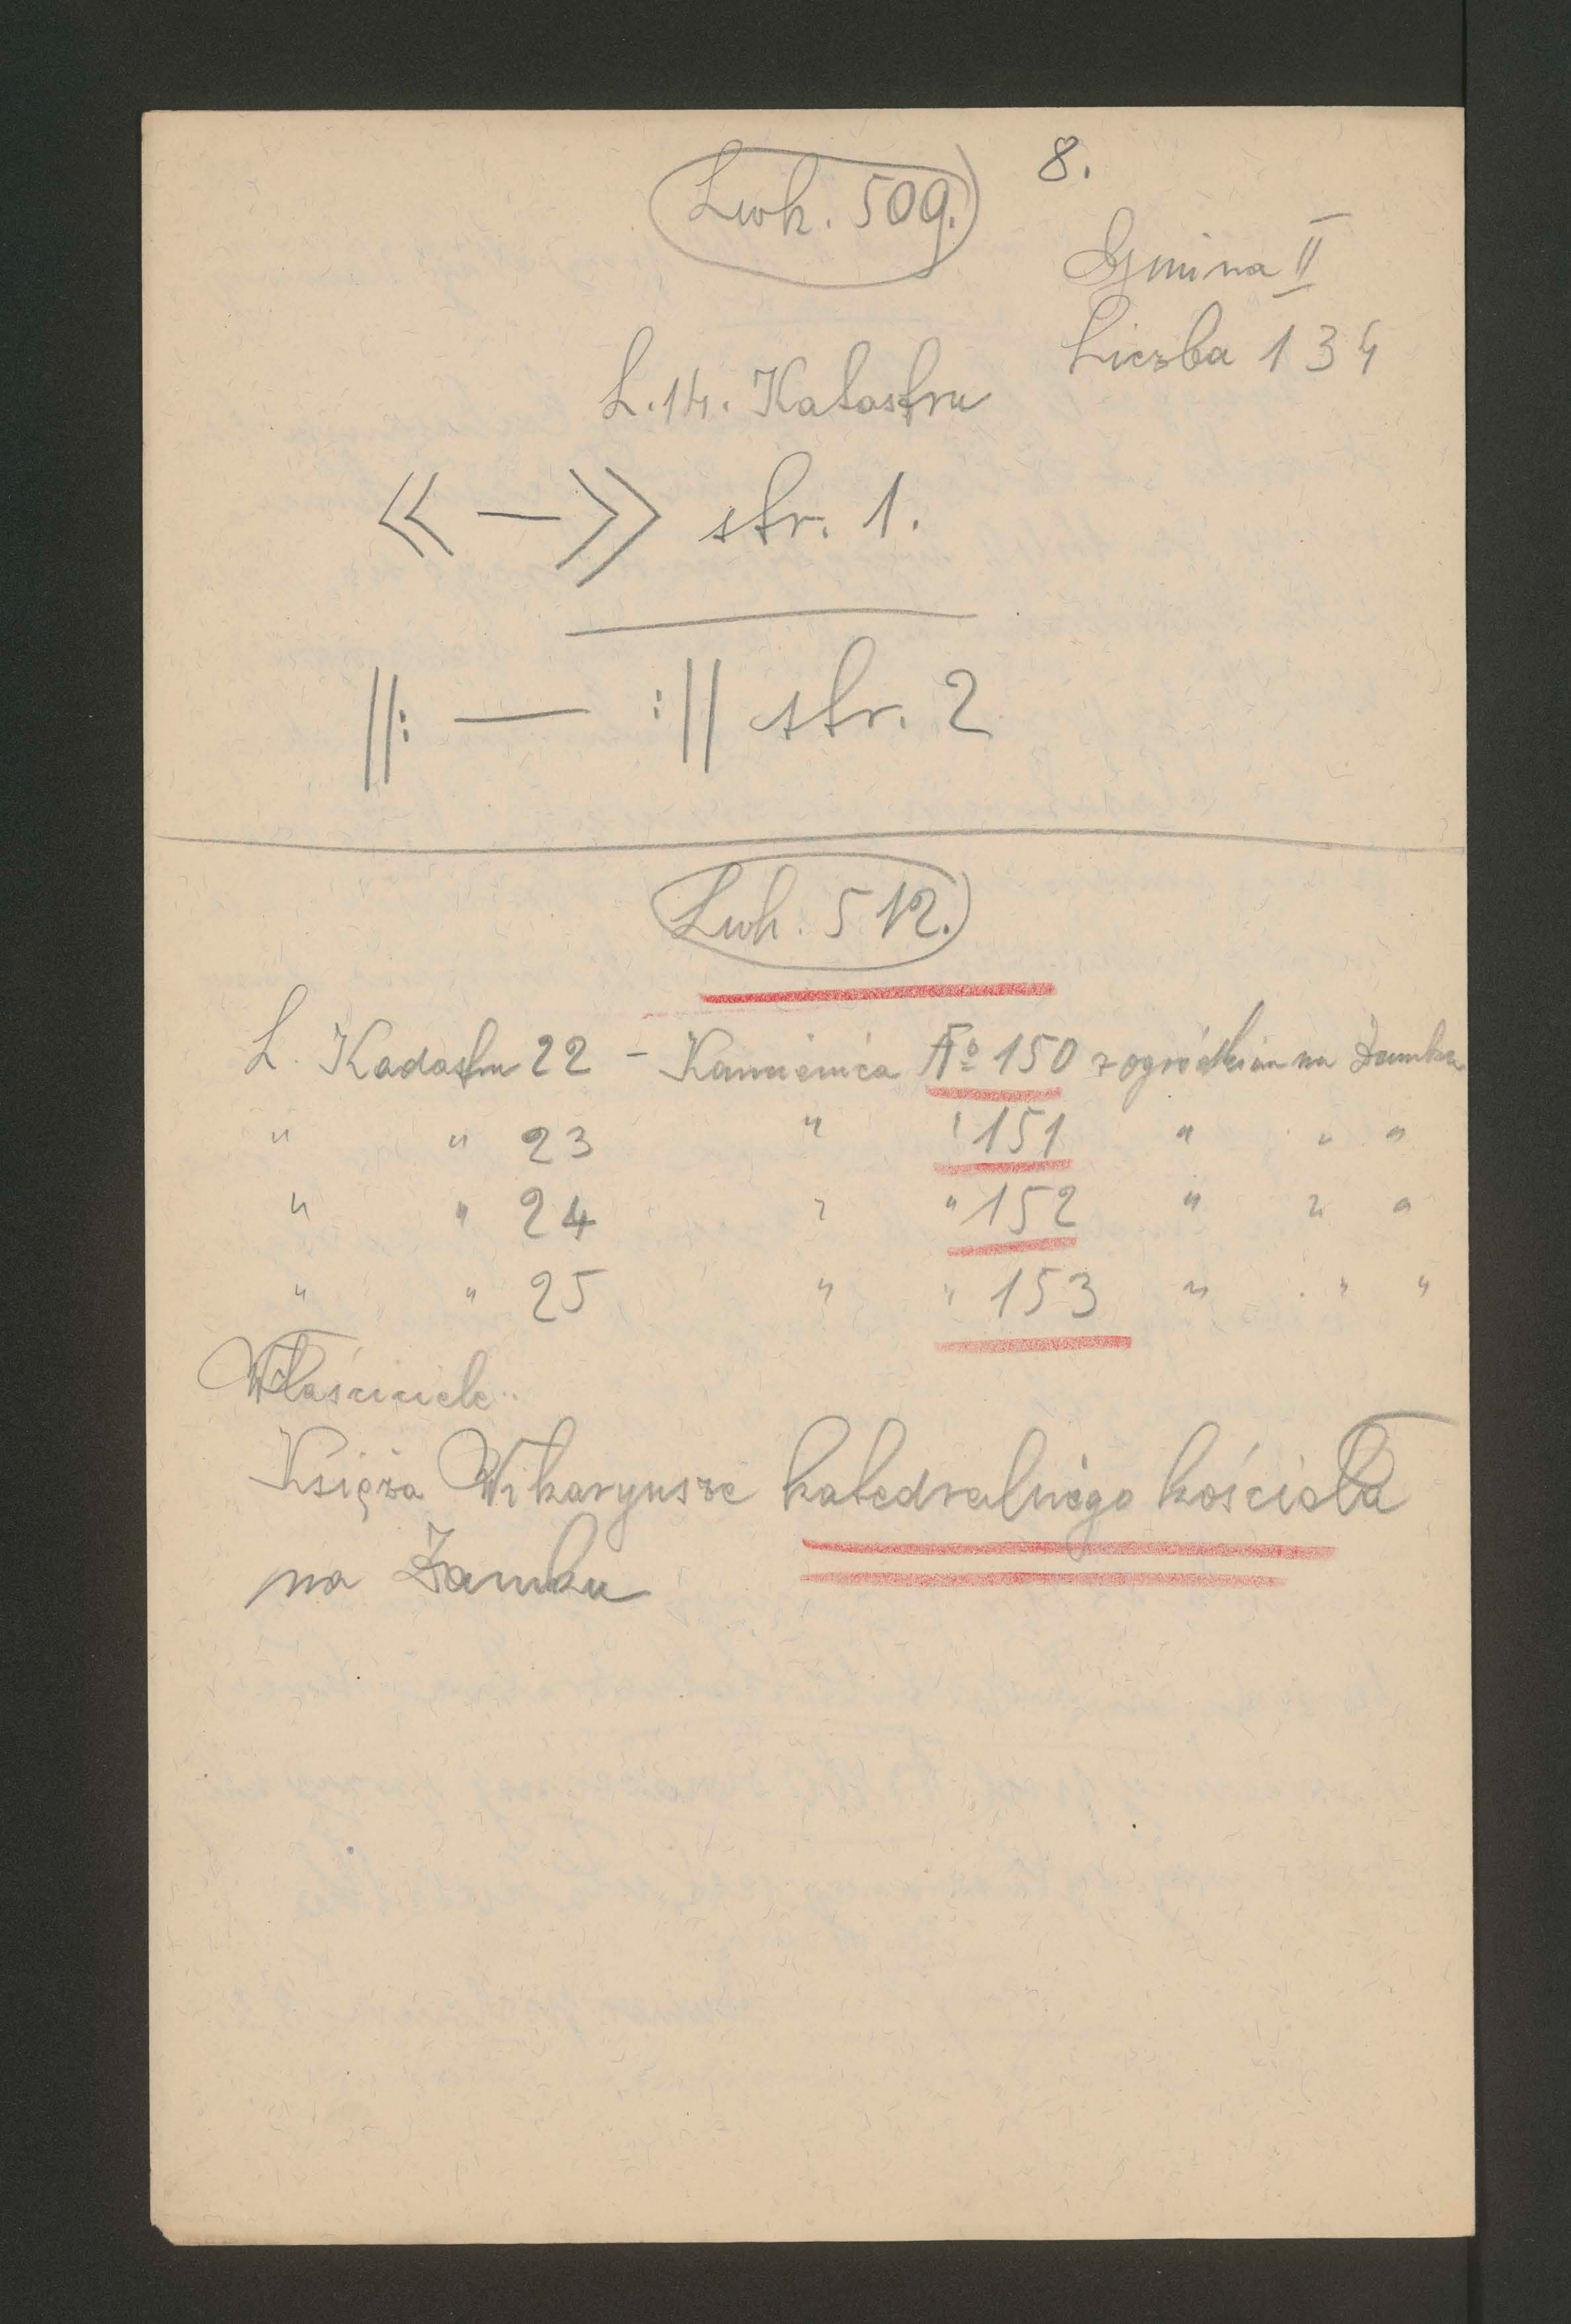 8.
Lwh. 509.
Gmina II
Liczba 134
L. 14. Katastru
« — » str. 1.
||: — :|| str. 2
Lwh. 512.
L. Kadastru 22 – Kamienica No 150 z ogródkiem na Zamku
" " 23 " " 151 " " "
" " 24 " " 152 " " "
" " 25 " " 153 " " "
Właściciele:
Księża Wikaryusze katedralnego kościoła
na Zamku